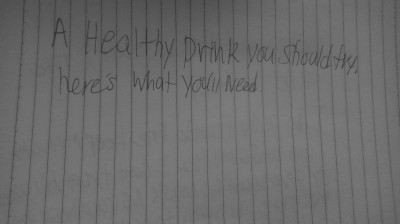 A Healthy Drink you should try,
here's what you'll need